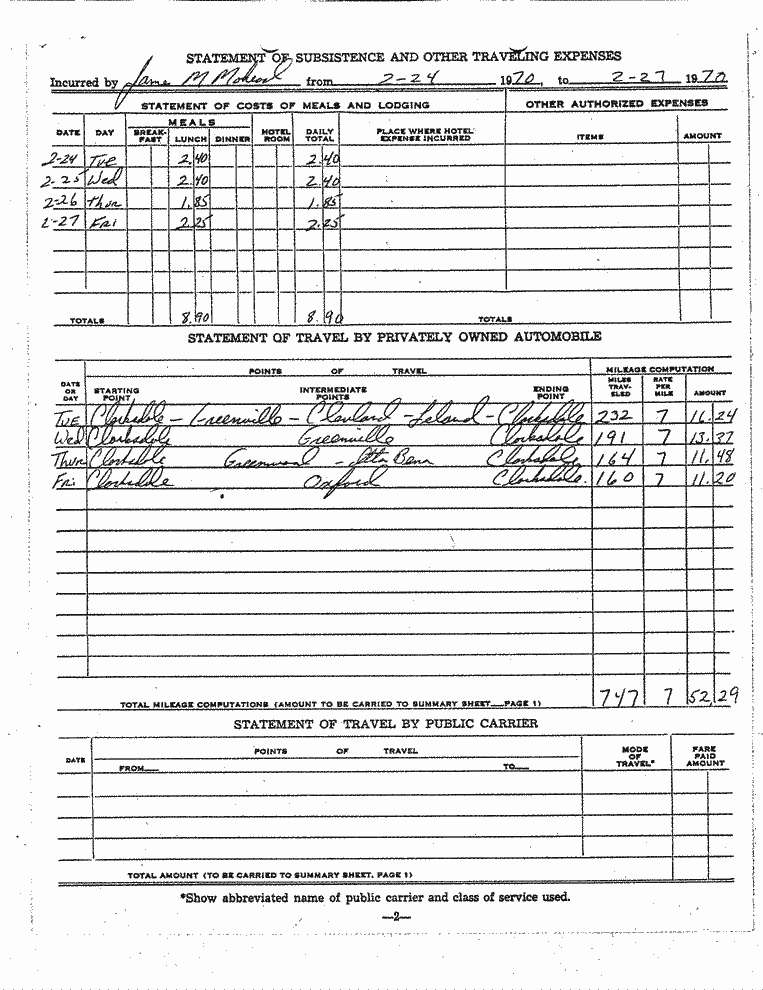 STATEMENT OF SUBSISTENCE AND OTHER TRAVELING EXPENSES
Incurred by James M from 2-24 1970, to 2-27 1970
STATEMENT OF COSTS OF MEALS AND LODGING OTHER AUTHORIZED EXPENSES
MEALS
DATE DAY BREAK-FAST LUNCH DINNER HOTEL ROOM DAILY TOTAL PLACE WHERE HOTEL EXPENSE INCURRED ITEMS AMOUNT
2-24 Tue 2.40 2.40
2-25 Wed 2.40 2.40
2-26 Thur 1.85 1.85
2-27 Fri 2.25 2.25
TOTALS 8.90 8.90 TOTALS
STATEMENT OF TRAVEL BY PRIVATELY OWNED AUTOMOBILE
POINTS OF TRAVEL MILEAGE COMPUTATION
DATE OR DAY STARTING POINT INTERMEDIATE POINTS ENDING POINT MILES TRAV-ELED RATE PER MILE AMOUNT
Tue Clarksdale - Greenville - Cleveland - Leland - Clarksdale 232 7 16.24
Wed Clarksdale Greenville Clarksdale 191 7 13.37
Thur Clarksdale Greenwood - Itta Bena Clarksdale 164 7 11.48
Fri Clarksdale Oxford Clarksdale. 160 7 11.20
TOTAL MILEAGE COMPUTATIONS (AMOUNT TO BE CARRIED TO SUMMARY SHEET—PAGE 1) 747 7 52.29
STATEMENT OF TRAVEL BY PUBLIC CARRIER
DATE POINTS OF TRAVEL MODE OF TRAVEL* FARE PAID AMOUNT
FROM— TO—
TOTAL AMOUNT (TO BE CARRIED TO SUMMARY SHEET, PAGE 1)
*Show abbreviated name of public carrier and class of service used.
—2—